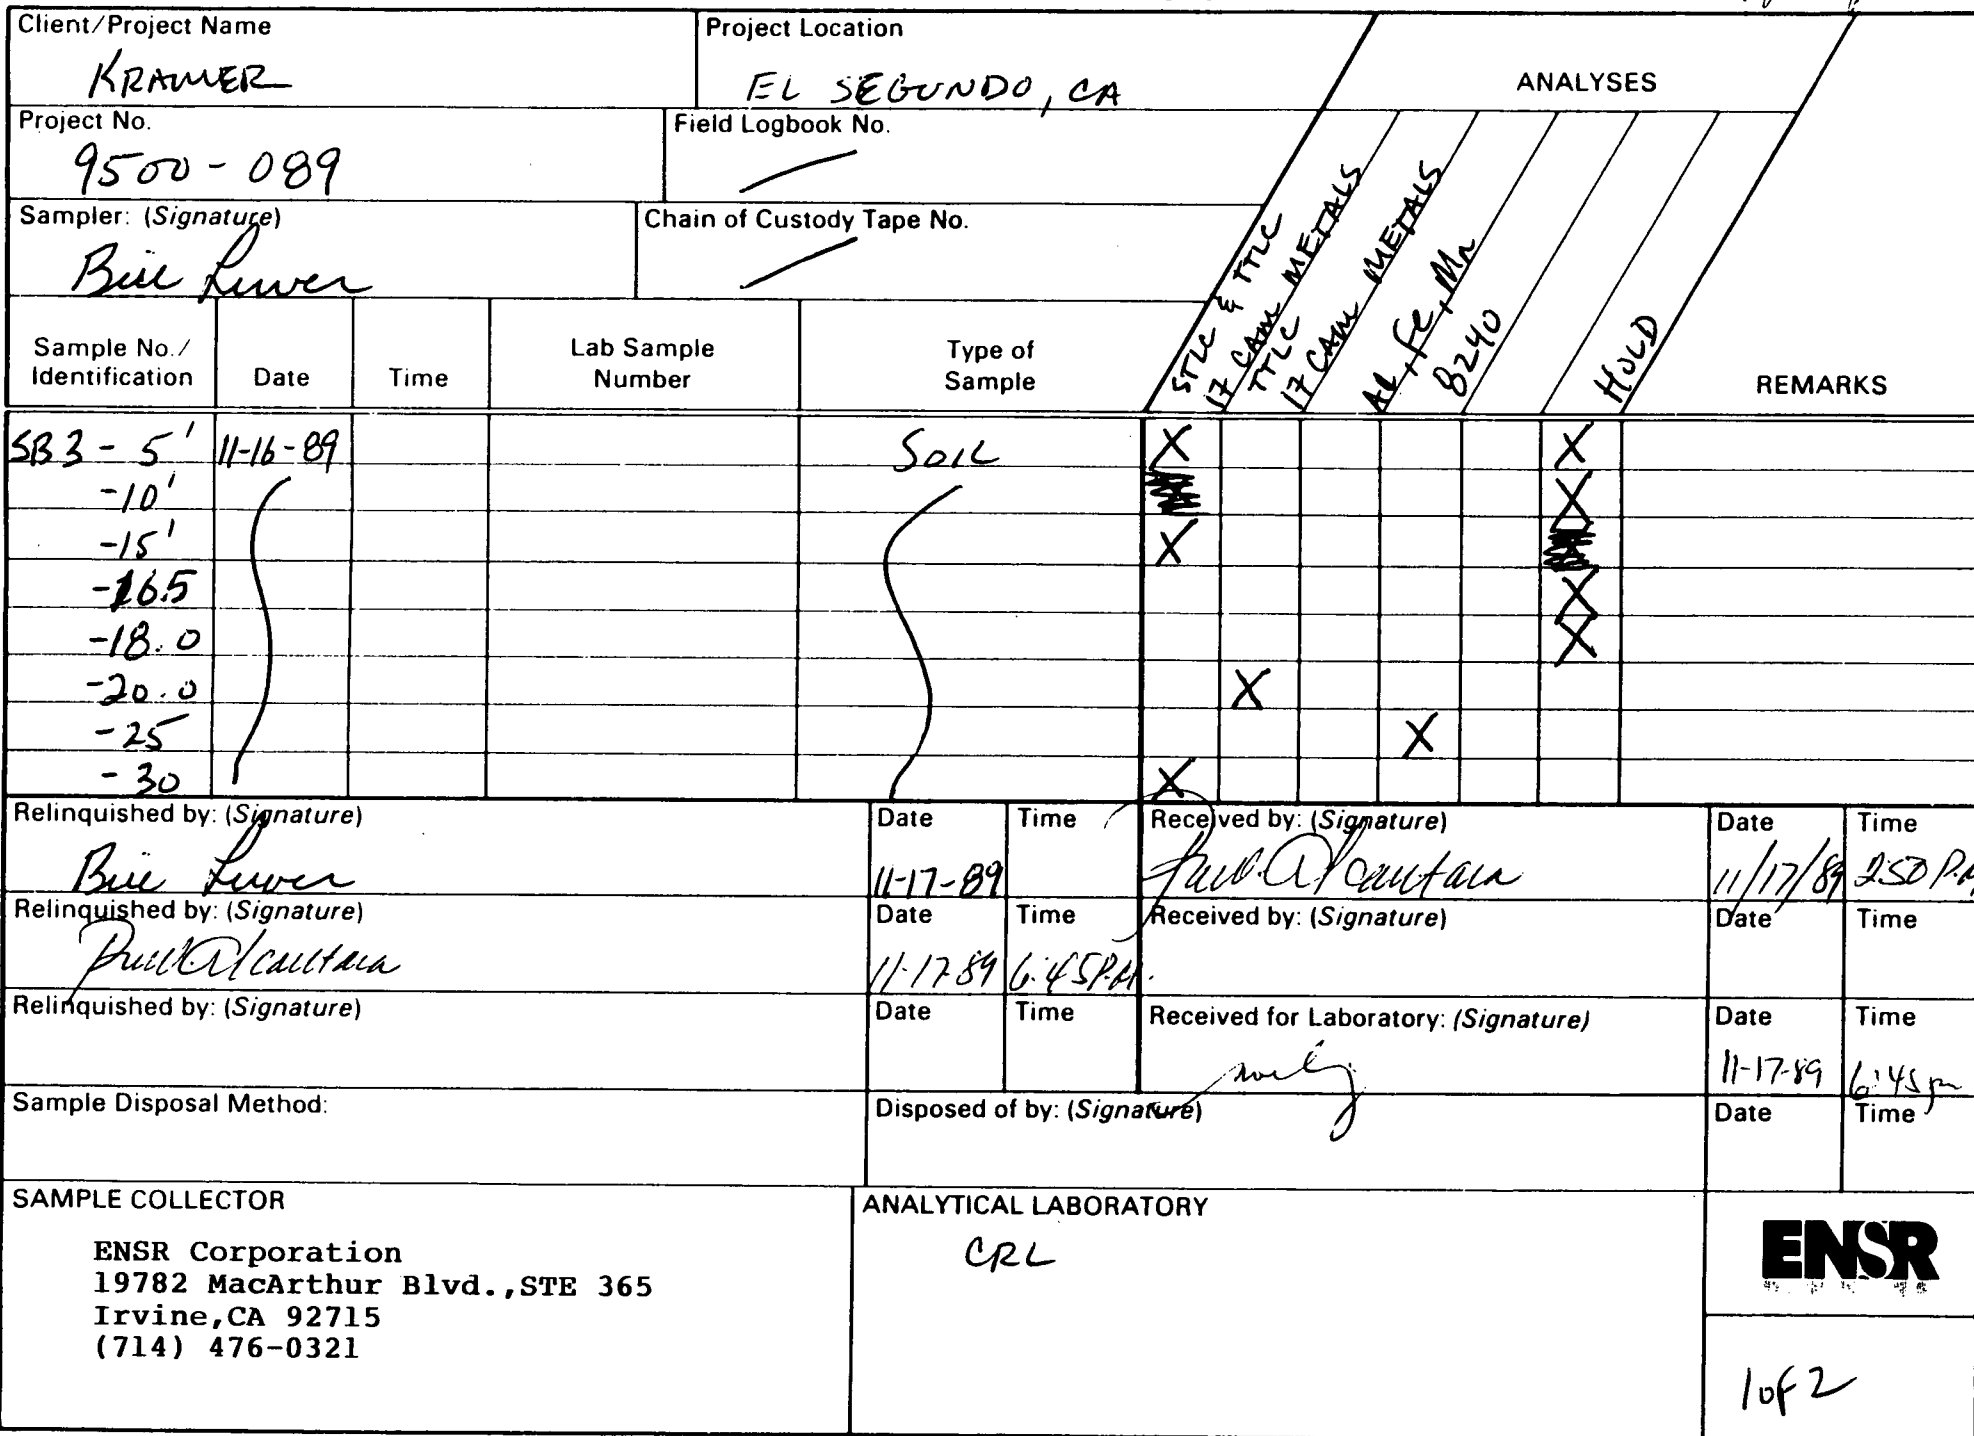 Client/Project Name
KRAMER
Project Location
EL SEGUNDO, CA
ANALYSES
Project No.
9500-089
Field Logbook No.
Sampler: (Signature)
Chain of Custody Tape No.
Bill
Sample No./
Identification
Date
Time
Lab Sample
Number
Type of
Sample
STLC & TTLC
17 CAM METALS
TTLC
17 CAM METALS
Al, Fe, Mn
8240
HOLD
REMARKS
SB3 - 5' 11-16-89 SOIL X X
-10' X
-15' X
-16.5 X
-18.0 X
-20.0 X
-25 X
-30 X
Relinquished by: (Signature)
Date
Time
Received by: (Signature)
Date
Time
Bill
11-17-89
Paul Alcantara
11/17/89 2:50 P.M
Relinquished by: (Signature)
Date
Time
Received by: (Signature)
Date
Time
Paul Alcantara
11-17-89 6:45 P.M.
Relinquished by: (Signature)
Date
Time
Received for Laboratory: (Signature)
Date
Time
11-17-89 6:45 pm
Sample Disposal Method:
Disposed of by: (Signature)
Date
Time
SAMPLE COLLECTOR
ENSR Corporation
19782 MacArthur Blvd.,STE 365
Irvine,CA 92715
(714) 476-0321
ANALYTICAL LABORATORY
CRL
ENSR
1 of 2